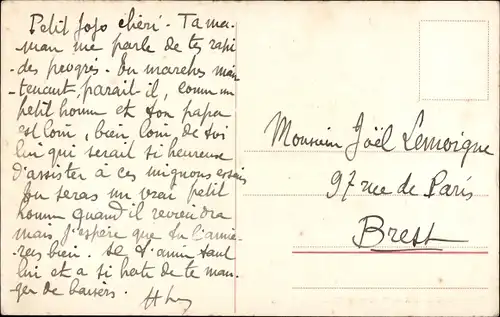 Petit Jojo chéri. Ta ma-
man me parle de tes rapi-
des progrès. Tu marches main
tenant, paraît-il, comme un
petit homme et ton papa
est loin, bien loin, de toi
lui qui serait si heureux
d'assister à ces mignons essais
Tu seras un vrai petit
homme quand il reviendra
mais j'espère que tu l'aime-
ras bien. Il t'aime tant
lui et a si hâte de te man-
ger de baisers.
Monsieur Joël Lemoigne
97 rue de Paris
Brest